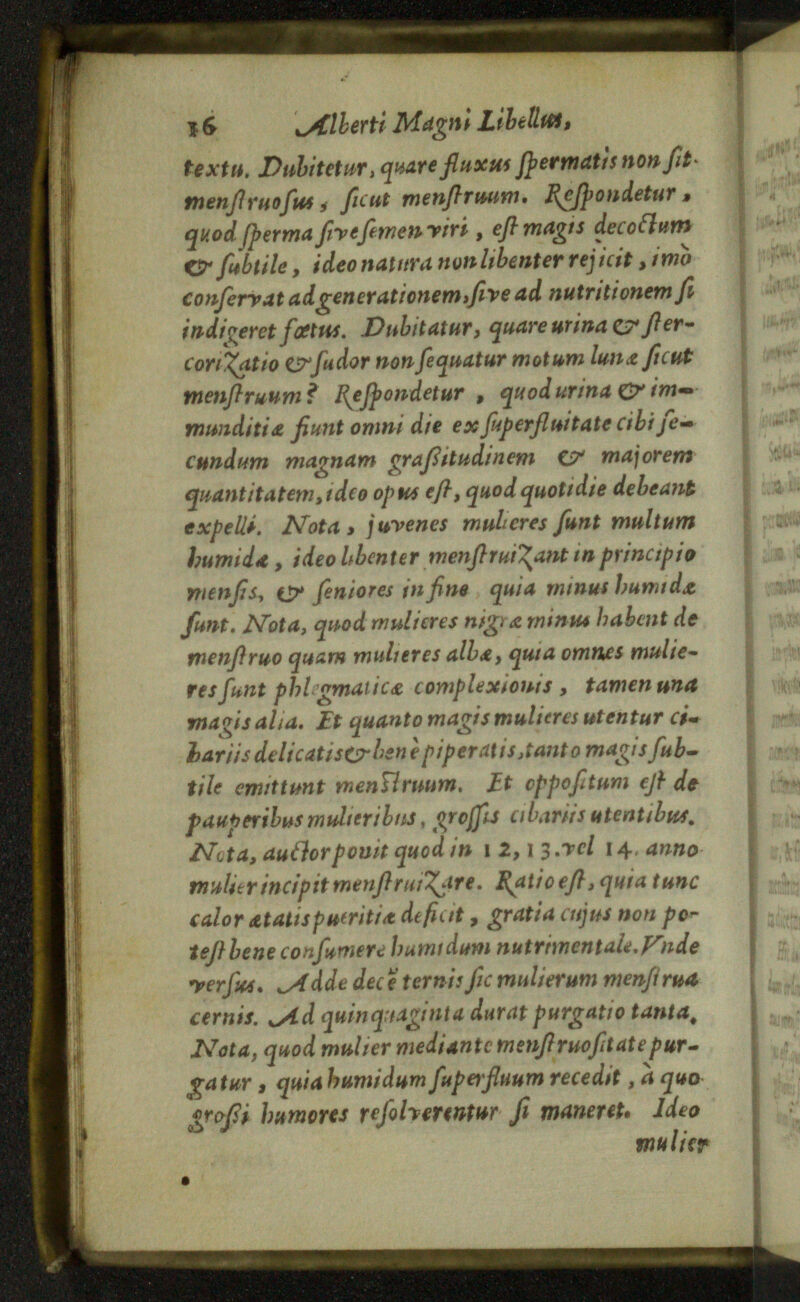 16 Alberti Magni Libellus,
textu. Dubitetur, quare fluxus ſpermatis non ſit
menſtruoſus, ſicut menſtruum. Reſpondetur,
quod ſperma ſive ſemen viri, eſt magis decoctum
& ſubtile, ideo natura non libenter rejicit, imò
conſervat ad generationem, ſive ad nutritionem ſi
indigeret fœtus. Dubitatur, quare urina & ſter-
corizatio & ſudor non ſequatur motum lunæ ſicut
menſtruum? Reſpondetur, quod urina & im-
munditiæ fiunt omni die ex ſuperfluitate cibi ſe-
cundum magnam graſſitudinem & majorem
quantitatem, ideo opus eſt, quod quotidie debeant
expelli. Nota, juvenes mulieres ſunt multum
humidæ, ideo libenter menſtruizant in principio
menſis, & ſeniores in fine quia minus humidæ
ſunt. Nota, quod mulieres nigræ minus habent de
menſtruo quam mulieres albæ, quia omnes mulie-
res ſunt phlegmaticæ complexionis, tamen una
magis alia. Et quanto magis mulieres utentur ci-
bariis delicatis & benè piperatis, tanto magis ſub-
tile emittunt menſtruum. Et oppoſitum eſt de
pauperibus mulieribus, groſſis cibariis utentibus.
Nota, auctor ponit quod in 12, 13. vel 14. anno
mulier incipit menſtruizare. Ratio eſt, quia tunc
calor ætatis pueritiæ deficit, gratia cujus non po-
teſt bene conſumere humidum nutrimentale. Vnde
verſus. Adde decē ternis ſic mulierum menſtrua
cernis. Ad quinquaginta durat purgatio tanta.
Nota, quod mulier mediante menſtruoſitate pur-
gatur, quia humidum ſuperfluum recedit, à quo
groſſi humores reſolverentur ſi maneret. Ideo
mulier